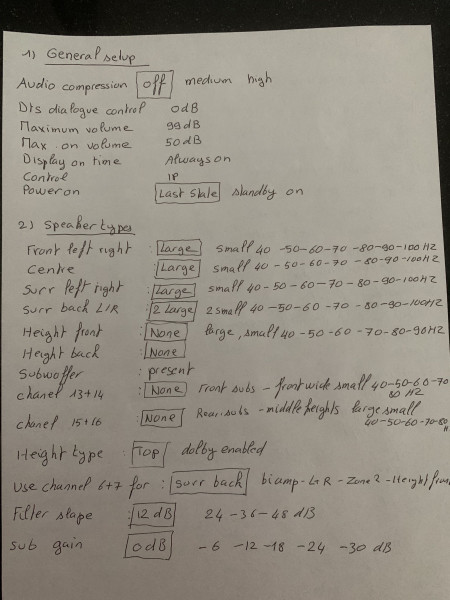 1) General setup
Audio compression off medium high
Dts dialogue control 0dB
Maximum volume 99dB
Max. on volume 50dB
Display on time Always on
Control IP
Power on Last State standby on
2) Speaker types
Front left right : Large small 40 -50-60-70 -80-90-100HZ
Centre : Large small 40 -50-60-70 -80-90-100HZ
Surr left right : Large small 40 -50-60-70-80-90-100HZ
Surr back L/R : 2 Large 2 small 40 -50-60-70-80-90-100HZ
Height front : None large, small 40-50-60-70-80-90HZ
Height back : None
Subwoffer : present
chanel 13+14 : None Front subs - front wide small 40-50-60-70
80 HZ
chanel 15+16 : None Rear subs - middle heights large small
40-50-60-70-80
Height type : Top dolby enabled
Use channel 6+7 for : surr back biamp-L+R-Zone 2-Height front
Filter slope : 12 dB 24 -36-48 dB
Sub gain 0dB -6 -12 -18 -24 -30 dB